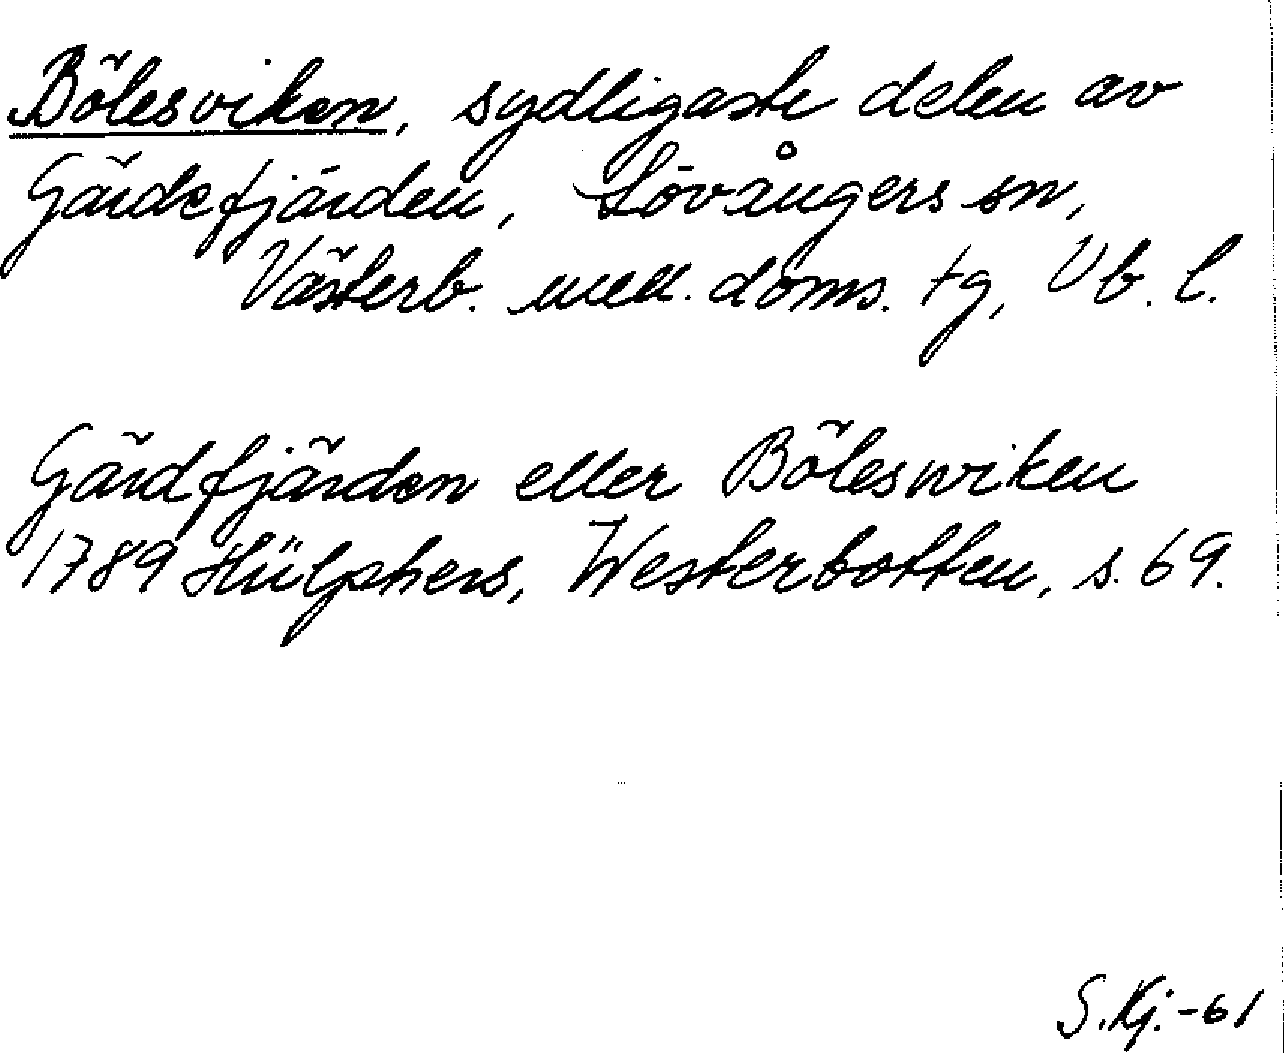 Bölesviken, sydligaste delen av
Gärdefjärden, Lövångers sn,
Västerb. mell. doms. tg, Vb. l.
Gärdfjärden eller Böleswiken
1789 Hülphers, Westerbotten, s. 69.
S. Kj. -61